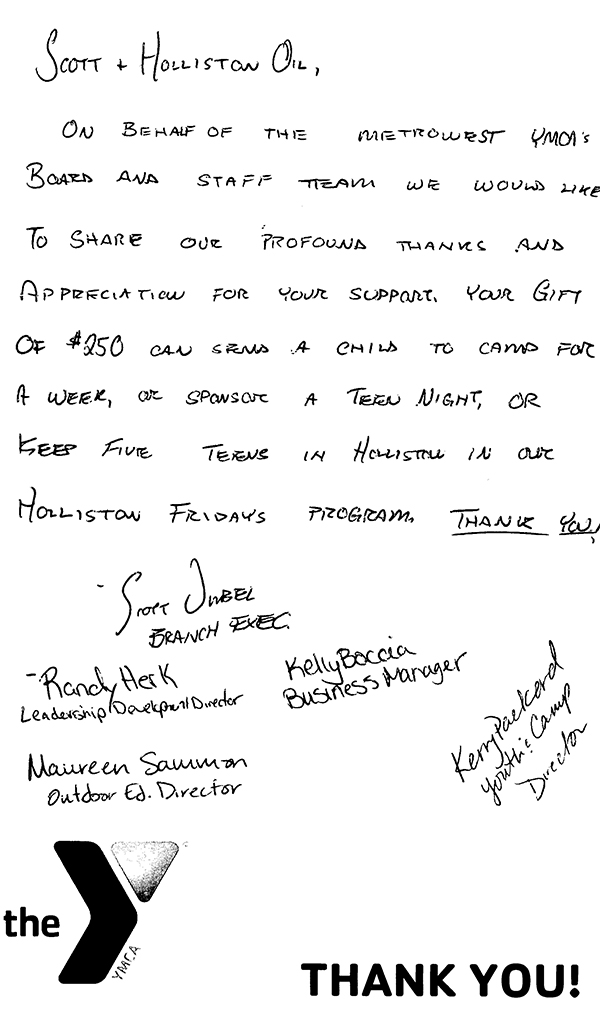 SCOTT + HOLLISTON OIL,
ON BEHALF OF THE METROWEST YMCA's
BOARD AND STAFF TEAM WE WOULD LIKE
TO SHARE OUR PROFOUND THANKS AND
APPRECIATION FOR YOUR SUPPORT. YOUR GIFT
OF $250 CAN SEND A CHILD TO CAMP FOR
A WEEK, OR SPONSOR A TEEN NIGHT, OR
KEEP FIVE TEENS IN HOLLISTON IN OUR
HOLLISTON FRIDAYS PROGRAM. THANK YOU!
- SCOTT
BRANCH EXEC.
- Randy Herk
Leadership Development Director
Kelly Boccia
Business Manager
Kerry Packard
Youth & Camp
Director
Maureen Sammon
Outdoor Ed. Director
the
YMCA
THANK YOU!